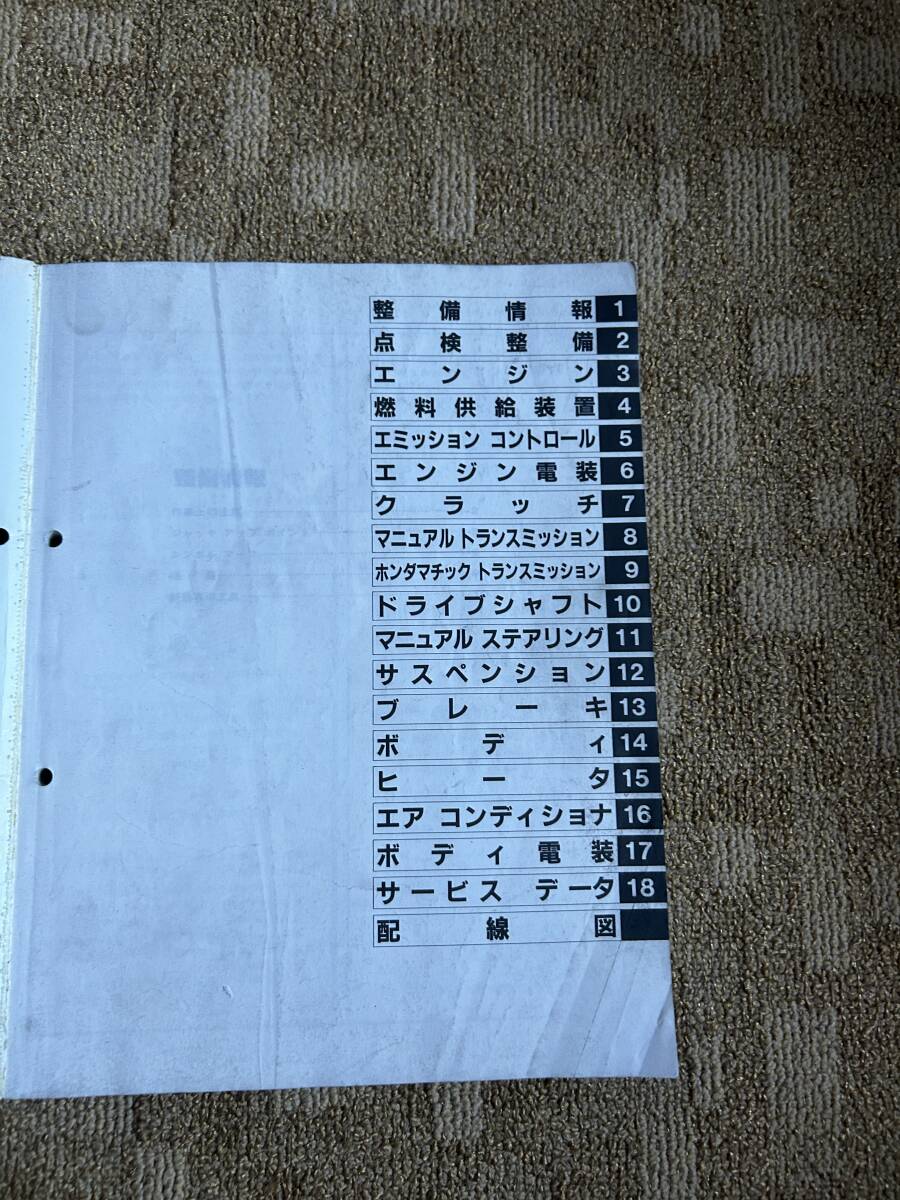 整備情報 1
点検整備 2
エンジン 3
燃料供給装置 4
エミッション コントロール 5
エンジン電装 6
クラッチ 7
マニュアル トランスミッション 8
ホンダマチック トランスミッション 9
ドライブシャフト 10
マニュアル ステアリング 11
サスペンション 12
ブレーキ 13
ボディ 14
ヒータ 15
エア コンディショナ 16
ボディ電装 17
サービス データ 18
配線図